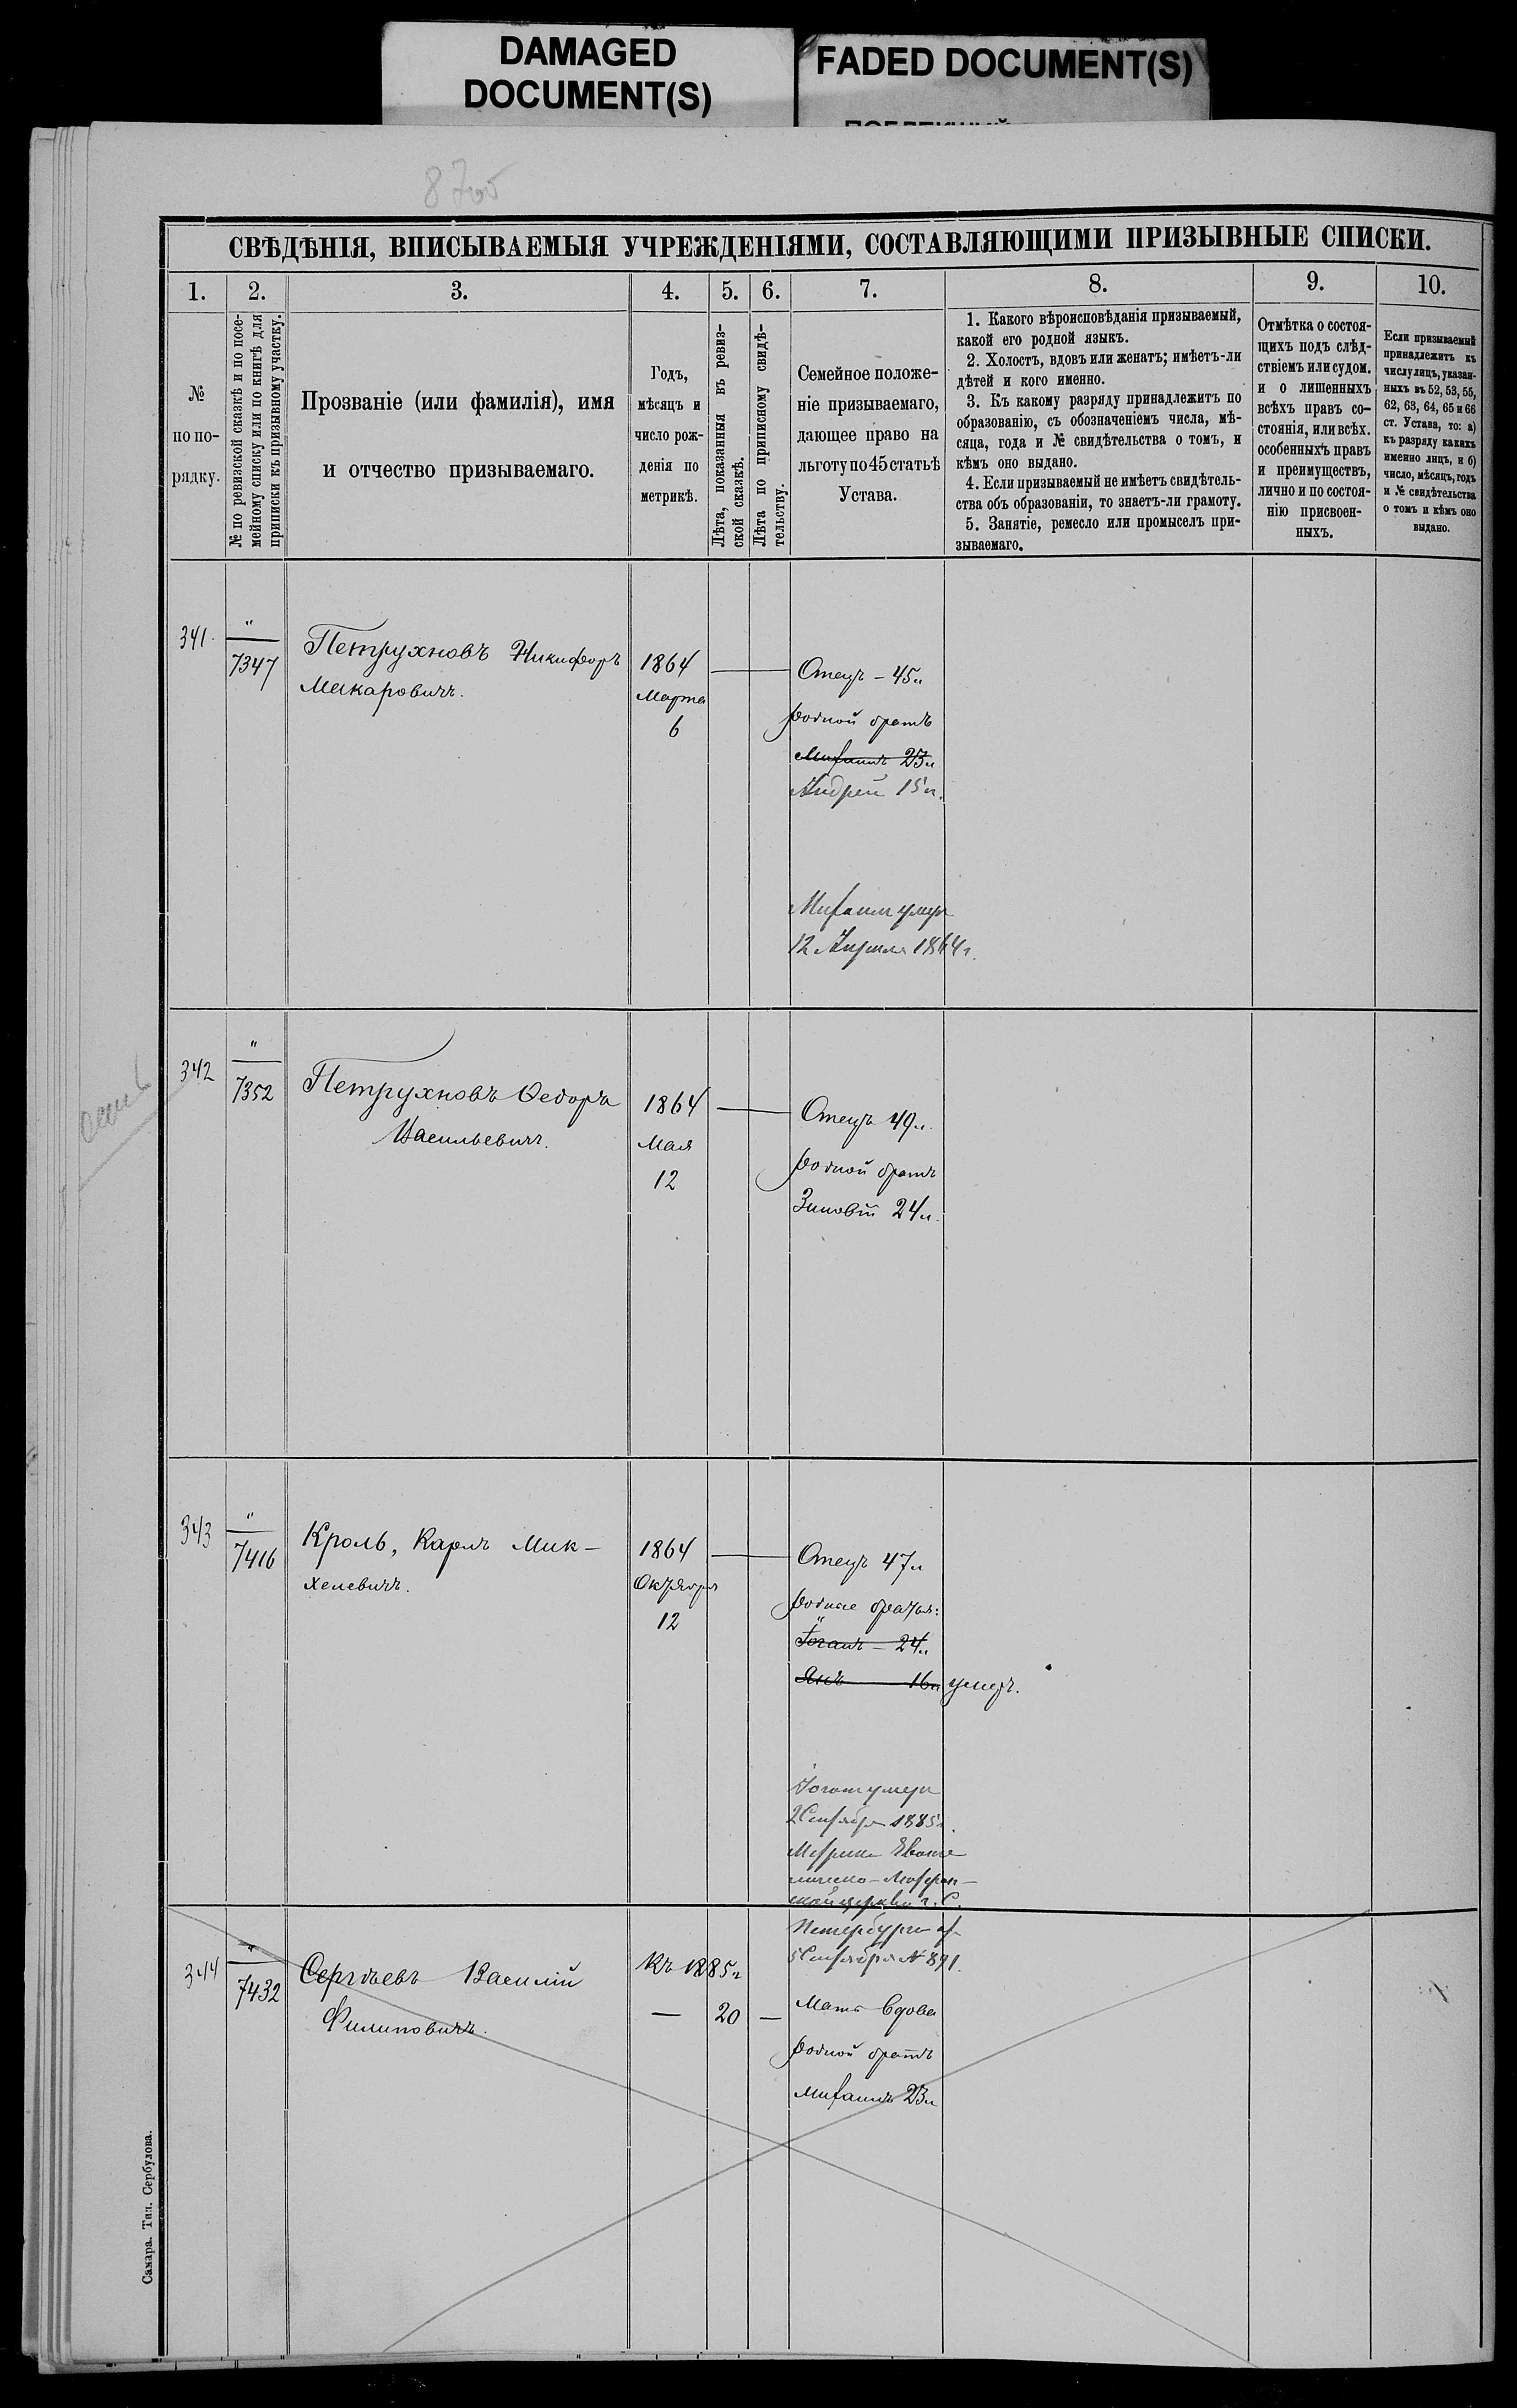 DAMAGED
DOCUMENT(S)
FADED DOCUMENT(S)
СВѢДѢНІЯ, ВПИСЫВАЕМЫЯ УЧРЕЖДЕНІЯМИ, СОСТАВЛЯЮЩИМИ ПРИЗЫВНЫЕ СПИСКИ.
1.
2.
3.
4.
5.
6.
7.
8.
9.
10.
№
по по-
рядку.
№ по ревизской сказкѣ и по посе-
мейному списку или по книгѣ для
приписки къ призывному участку.
Прозваніе (или фамилія), имя
и отчество призываемаго.
Годъ,
мѣсяцъ и
число рож-
денія по
метрикѣ.
Лѣта, показанныя въ ревиз-
ской сказкѣ.
Лѣта по приписному свидѣ-
тельству.
Семейное положе-
ніе призываемаго,
дающее право на
льготу по 45 статьѣ
Устава.
1. Какого вѣроисповѣданія призываемый,
какой его родной языкъ.
2. Холостъ, вдовъ или женатъ; имѣетъ-ли
дѣтей и кого именно.
3. Къ какому разряду принадлежитъ по
образованію, съ обозначеніемъ числа, мѣ-
сяца, года и № свидѣтельства о томъ, и
кѣмъ оно выдано.
4. Если призываемый не имѣетъ свидѣтель-
ства объ образованіи, то знаетъ-ли грамоту.
5. Занятіе, ремесло или промыселъ при-
зываемаго.
Отмѣтка о состоя-
щихъ подъ слѣд-
ствіемъ или судом.
и о лишенныхъ
всѣхъ правъ со-
стоянія, или всѣх.
особенныхъ правъ
и преимуществъ,
лично и по состоя-
нію присвоен-
ныхъ.
Если призываемый
принадлежитъ къ
числу лицъ, указан-
ныхъ въ 52, 53, 55,
62, 63, 64, 65 и 66
ст. Устава, то: а)
къ разряду какихъ
именно лицъ, и б)
число, мѣсяцъ, годъ
и № свидѣтельства
о томъ и кѣмъ оно
выдано.
341.
"
7347
Петрухновъ Никифоръ
Макаровичъ.
1864
Марта
6
Отецъ - 45 л
родной братъ
Михаилъ 23 л
Андрей 15 л.
Михаилъ умеръ
12 Апреля 1864 г.
342
"
7352
Петрухновъ Ѳедоръ
Васильевичъ.
1864
Мая
12
Отецъ 49 л.
родной братъ
Зиновій 24 л.
343
"
7416
Кроль, Карлъ Мик-
хелевичъ.
1864
Октября
12
Отецъ 47 л
родные братья:
Іоганъ - 24 л
Янъ 16 л умеръ.
Іоганъ умеръ
2 Сентября 1885 г.
Метрика Еванге
лическо-Лютеран-
ской церкви г. С.
Петербурга от
5 Сентября № 891.
344
"
7432
Сергѣевъ Василій
Филиповичъ.
Къ 1885 г
— 20 —
Мать вдова
родной братъ
Михаилъ 23 л
Самара. Тип. Сербулова.